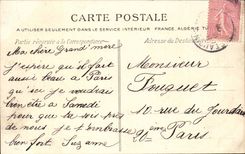 CARTE POSTALE
A UTILISER SEULEMENT DANS LE SERVICE INTÉRIEUR FRANCE, ALGÉRIE
Partie réservée à la Correspondance
Adresse du Destinat
Ma chère Grand'mère
J'espère qu'il fait
aussi beau à Paris
qu'ici je voudrais
bien être à Samedi
pour que tu sois près
de nous je t'embrasse
bien fort Suzanne
Monsieur
Fouquet
10 rue du Jourdain
Paris